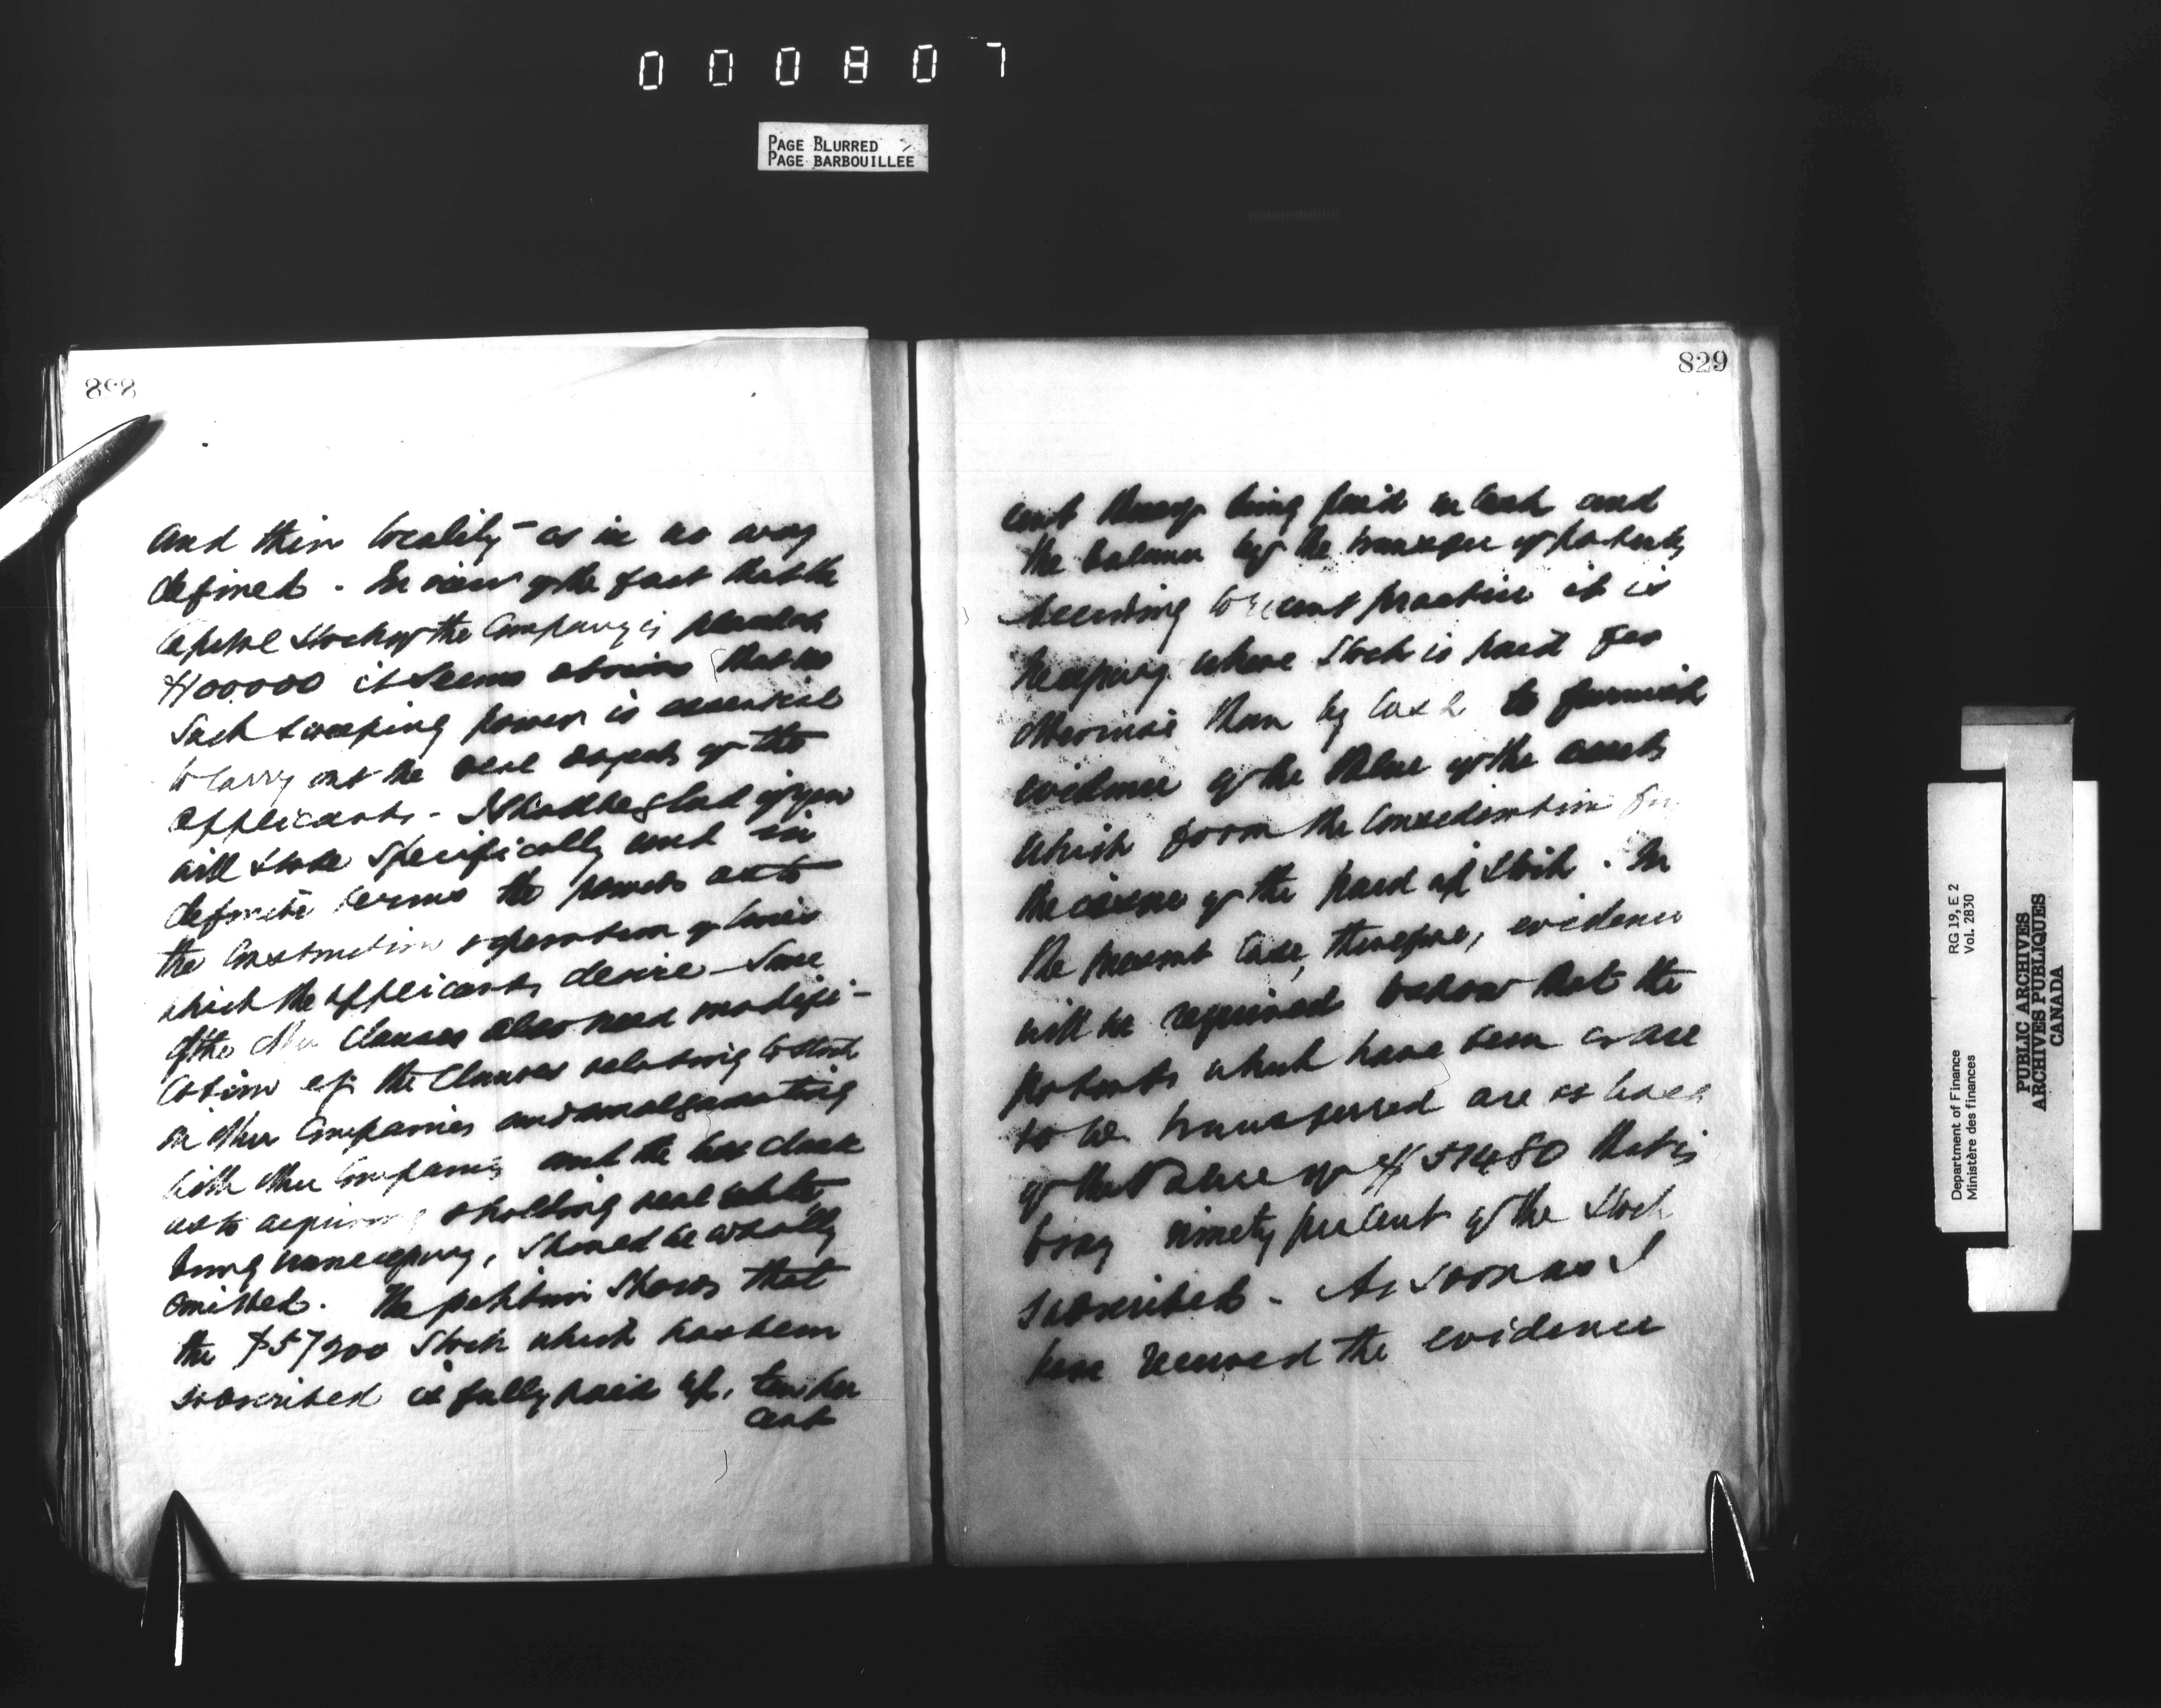 000807
PAGE BLURRED
PAGE BARBOUILLEE
828
and their locality - as in no way
defined. In view of the fact that the
Capital Stock of the Company is placed at
$100000 it seems obvious that no
such sweeping power is essential
to carry out the real objects of the
applicants - I should be glad if you
will state specifically and in
definite terms the powers as to
the construction & operation of lines
which the applicants desire - Some
of the other clauses also need modifi-
cation e.g. the Clauses relating to stock
in other Companies and amalgamating
with other Companies and the last clause
as to acquiring & holding real estate
being unnecessary, should be wholly
omitted. The petition shows that
the $57200 Stock which has been
subscribed is fully paid up, ten per
cent
829
cent thereof being paid in cash and
the balance by the transfer of patents
According to recent practice it is
necessary where Stock is paid for
otherwise than by cash to furnish
evidence of the Value of the assets
which form the consideration for
the issue of the paid up Stock. In
the present case, therefore, evidence
will be required to show that the
patents which have been or are
to be transferred are at least
of the Value of $51480 that is
being ninety per cent of the Stock
subscribed. As soon as I
have received the evidence
Department of Finance
Ministère des finances
RG 19, E 2
Vol. 2830
PUBLIC ARCHIVES
ARCHIVES PUBLIQUES
CANADA